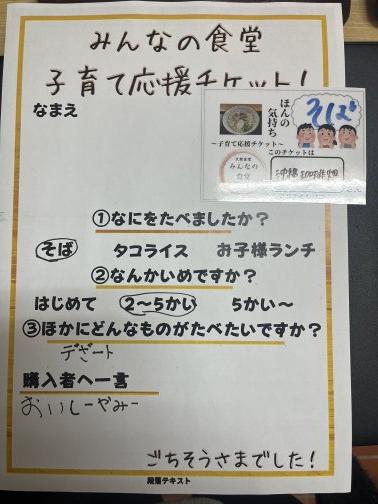 みんなの食堂
子育て応援チケット!
なまえ
ほんの
気持ち
そば
～子育て応援チケット～
このチケットは
みんなの
食堂
①なにをたべましたか？
そば タコライス お子様ランチ
②なんかいめですか？
はじめて 2～5かい 5かい～
③ほかにどんなものがたべたいですか？
デザート
購入者へ一言
おいしーやみー
ごちそうさまでした!
段落テキスト